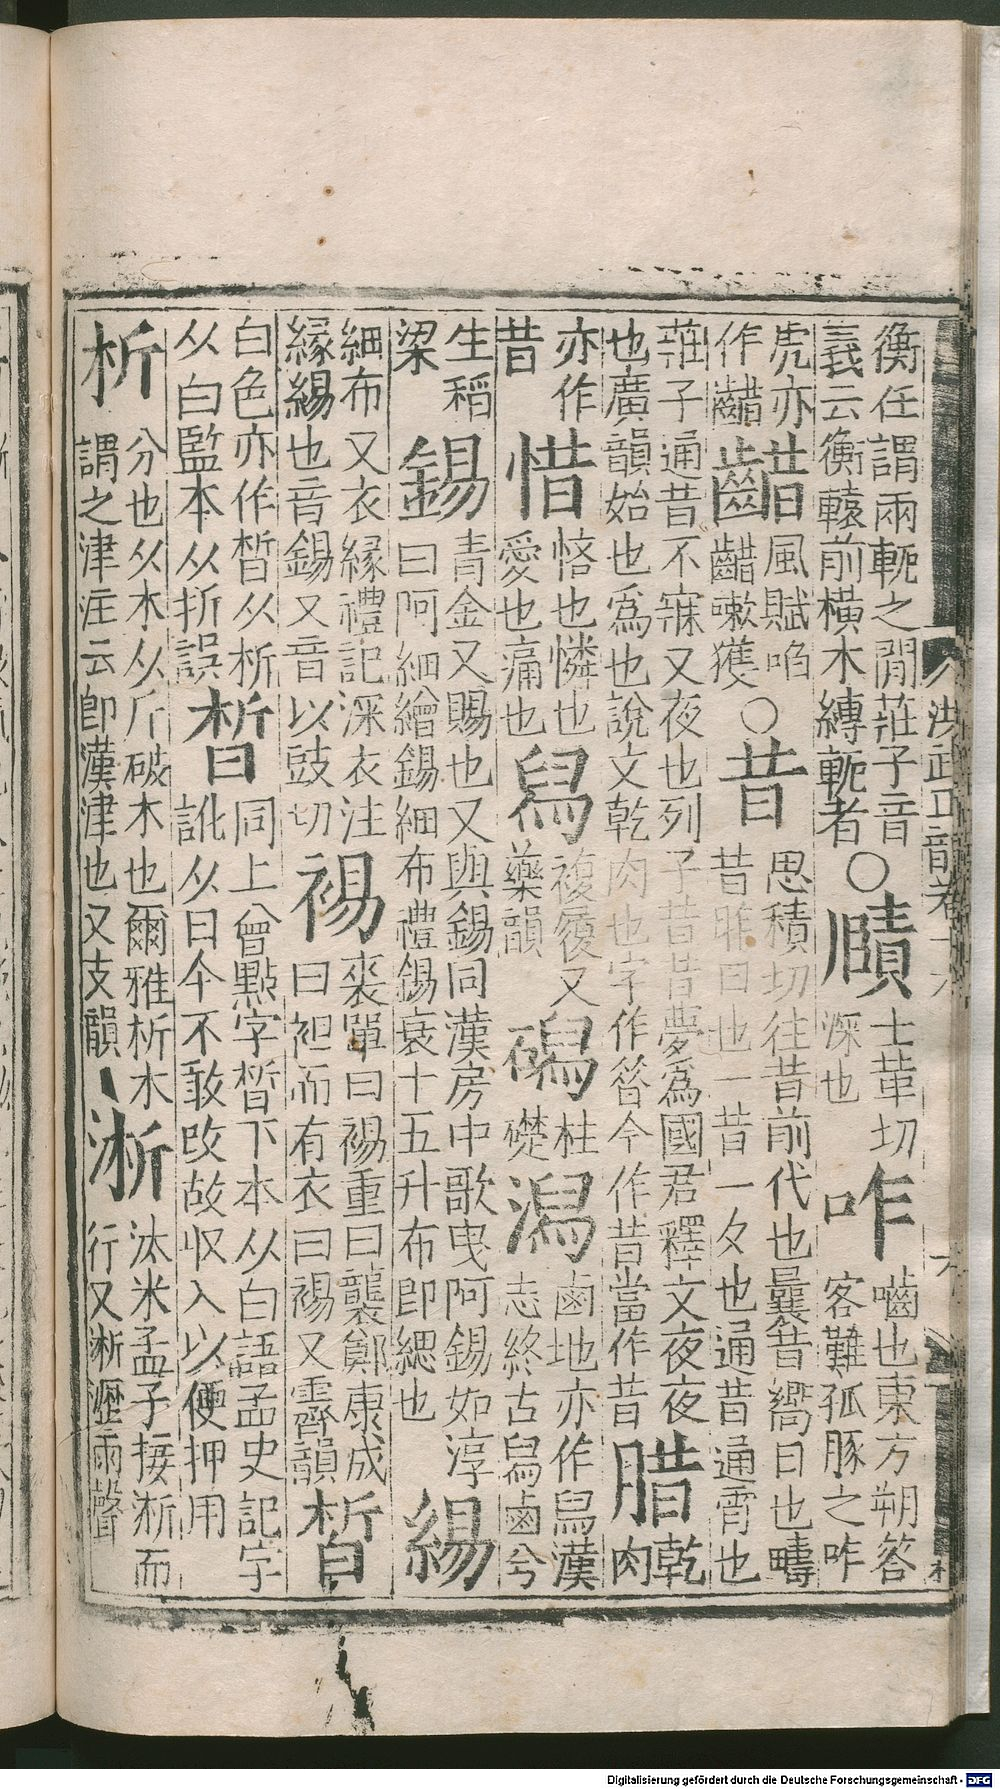 洪武正韻卷十六
衡任謂兩軛之閒莊子音
義云衡轅前橫木縛軛者○
賾
士革切
深也
咋
嚙也東方朔答
客難孤豚之咋
虎亦
作齰
齰
風賦啗
齰嗽獲○
昔
思積切往昔前代也曩昔嚮日也疇
昔昨日也一昔一夕也通昔通宵也
莊子通昔不寐又夜也列子昔昔夢為國君釋文夜夜
也廣韻始也為也說文乾肉也字作㫺今作昔當作昔
腊
乾
肉
亦作
昔
惜
悋也憐也
愛也痛也
舄
複履又
藥韻
磶
柱
礎
潟
鹵地亦作舄漢
志終古舄鹵兮
生稻
梁
錫
青金又賜也又與錫同漢房中歌曳阿錫如淳
曰阿細繒錫細布禮錫衰十五升布即緦也
緆
細布又衣緣禮記深衣注
緣緆也音錫又音以豉切
裼
裘單曰裼重曰襲鄭康成
曰袒而有衣曰裼又霽韻
皙
白色亦作晳从析
从白監本从折誤
晳
同上曾點字皙下本从白語孟史記字
訛从日今不敢改故収入以便押用
析
分也从木从斤破木也爾雅析木
謂之津注云即漢津也又支韻
淅
汰米孟子接淅而
行又淅瀝雨聲
Digitalisierung gefördert durch die Deutsche Forschungsgemeinschaft - DFG